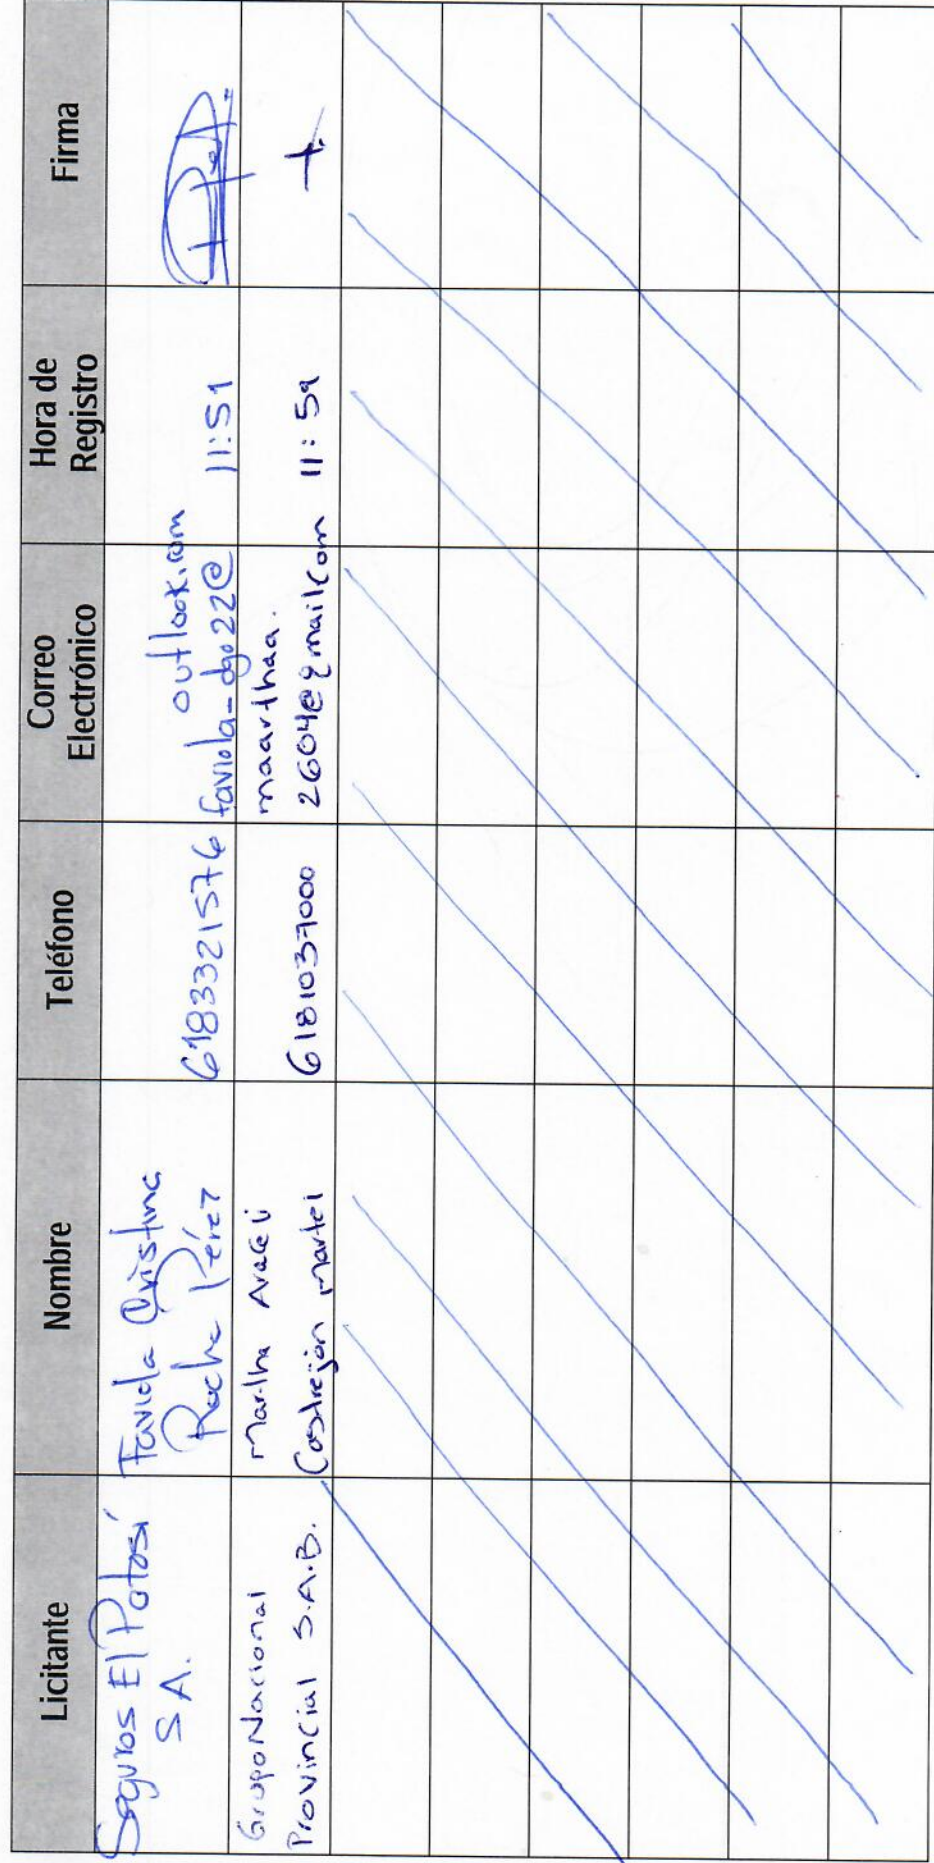 Licitante
Nombre
Teléfono
Correo
Electrónico
Hora de
Registro
Firma
Seguros El Potosí
S A.
Faviola Cristina
Rocha Pérez
6183321576
outlook.com
faviola_dgo22@
11:51
Grupo Nacional
Provincial S.A.B.
Martha Araceli
Castrejón Martel
6181037000
maarthaa.
2604@gmail.com
11:59